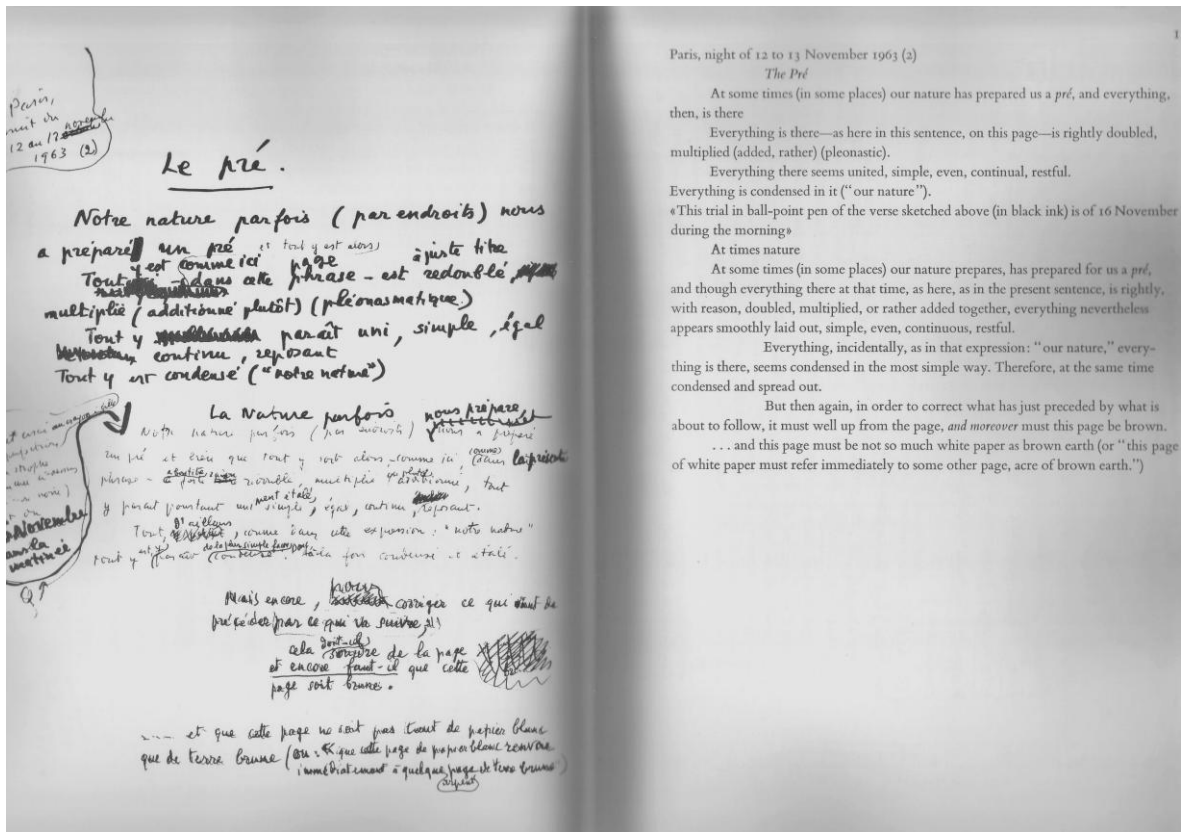 Paris,
nuit du
12 au 13 novembre
1963 (2)
Le pré.
Notre nature parfois (par endroits) nous
a préparé un pré et tout y est alors,
Tout y est comme ici page à juste titre
dans cette phrase - est redoublé
multiplié (additionné plutôt) (pléonasmatique)
Tout y paraît uni, simple, égal
continu, reposant
Tout y est condensé ("notre nature")
La Nature parfois nous prépare
Notre nature parfois (par endroits) nous a préparé
un pré et bien que tout y soit alors, comme ici, (comme) dans la présente
phrase - redoublé, multiplié ou plutôt additionné, tout
y paraît pourtant uniment étalé, simple, égal, continu, reposant.
Tout, d'ailleurs, comme dans cette expression : "notre nature"
tout y est, y paraît de la plus simple façon condensé. à la fois condensé et étalé.
novembre
dans la
matinée
Mais encore, pour corriger ce qui vient de
précéder par ce qui va suivre,
cela doit-il sourdre de la page
et encore faut-il que cette
page soit brune.
.... et que cette page ne soit pas tant de papier blanc
que de terre brune (ou : "que cette page de papier blanc renvoie
immédiatement à quelque page de terre brune)
arpent
1
Paris, night of 12 to 13 November 1963 (2)
The Pré
At some times (in some places) our nature has prepared us a pré, and everything,
then, is there
Everything is there—as here in this sentence, on this page—is rightly doubled,
multiplied (added, rather) (pleonastic).
Everything there seems united, simple, even, continual, restful.
Everything is condensed in it ("our nature").
«This trial in ball-point pen of the verse sketched above (in black ink) is of 16 November
during the morning»
At times nature
At some times (in some places) our nature prepares, has prepared for us a pré,
and though everything there at that time, as here, as in the present sentence, is rightly,
with reason, doubled, multiplied, or rather added together, everything nevertheless
appears smoothly laid out, simple, even, continuous, restful.
Everything, incidentally, as in that expression: "our nature," every-
thing is there, seems condensed in the most simple way. Therefore, at the same time
condensed and spread out.
But then again, in order to correct what has just preceded by what is
about to follow, it must well up from the page, and moreover must this page be brown.
. . . and this page must be not so much white paper as brown earth (or "this page
of white paper must refer immediately to some other page, acre of brown earth.")